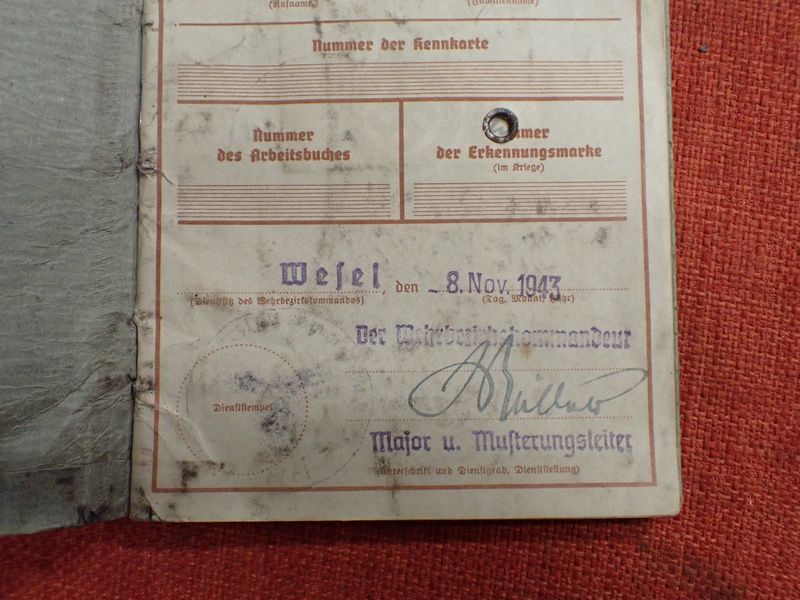 (Rufname) (Familienname)
Nummer der Kennkarte
Nummer
des Arbeitsbuches
Nummer
der Erkennungsmarke
(im Kriege)
Wesel, den - 8. Nov. 1943
(Dienstsitz des Wehrbezirkskommandos) (Tag, Monat, Jahr)
Der Wehrbezirkskommandeur
Dienststempel
Major u. Musterungsleiter
(Unterschrift und Dienstgrad, Dienststellung)